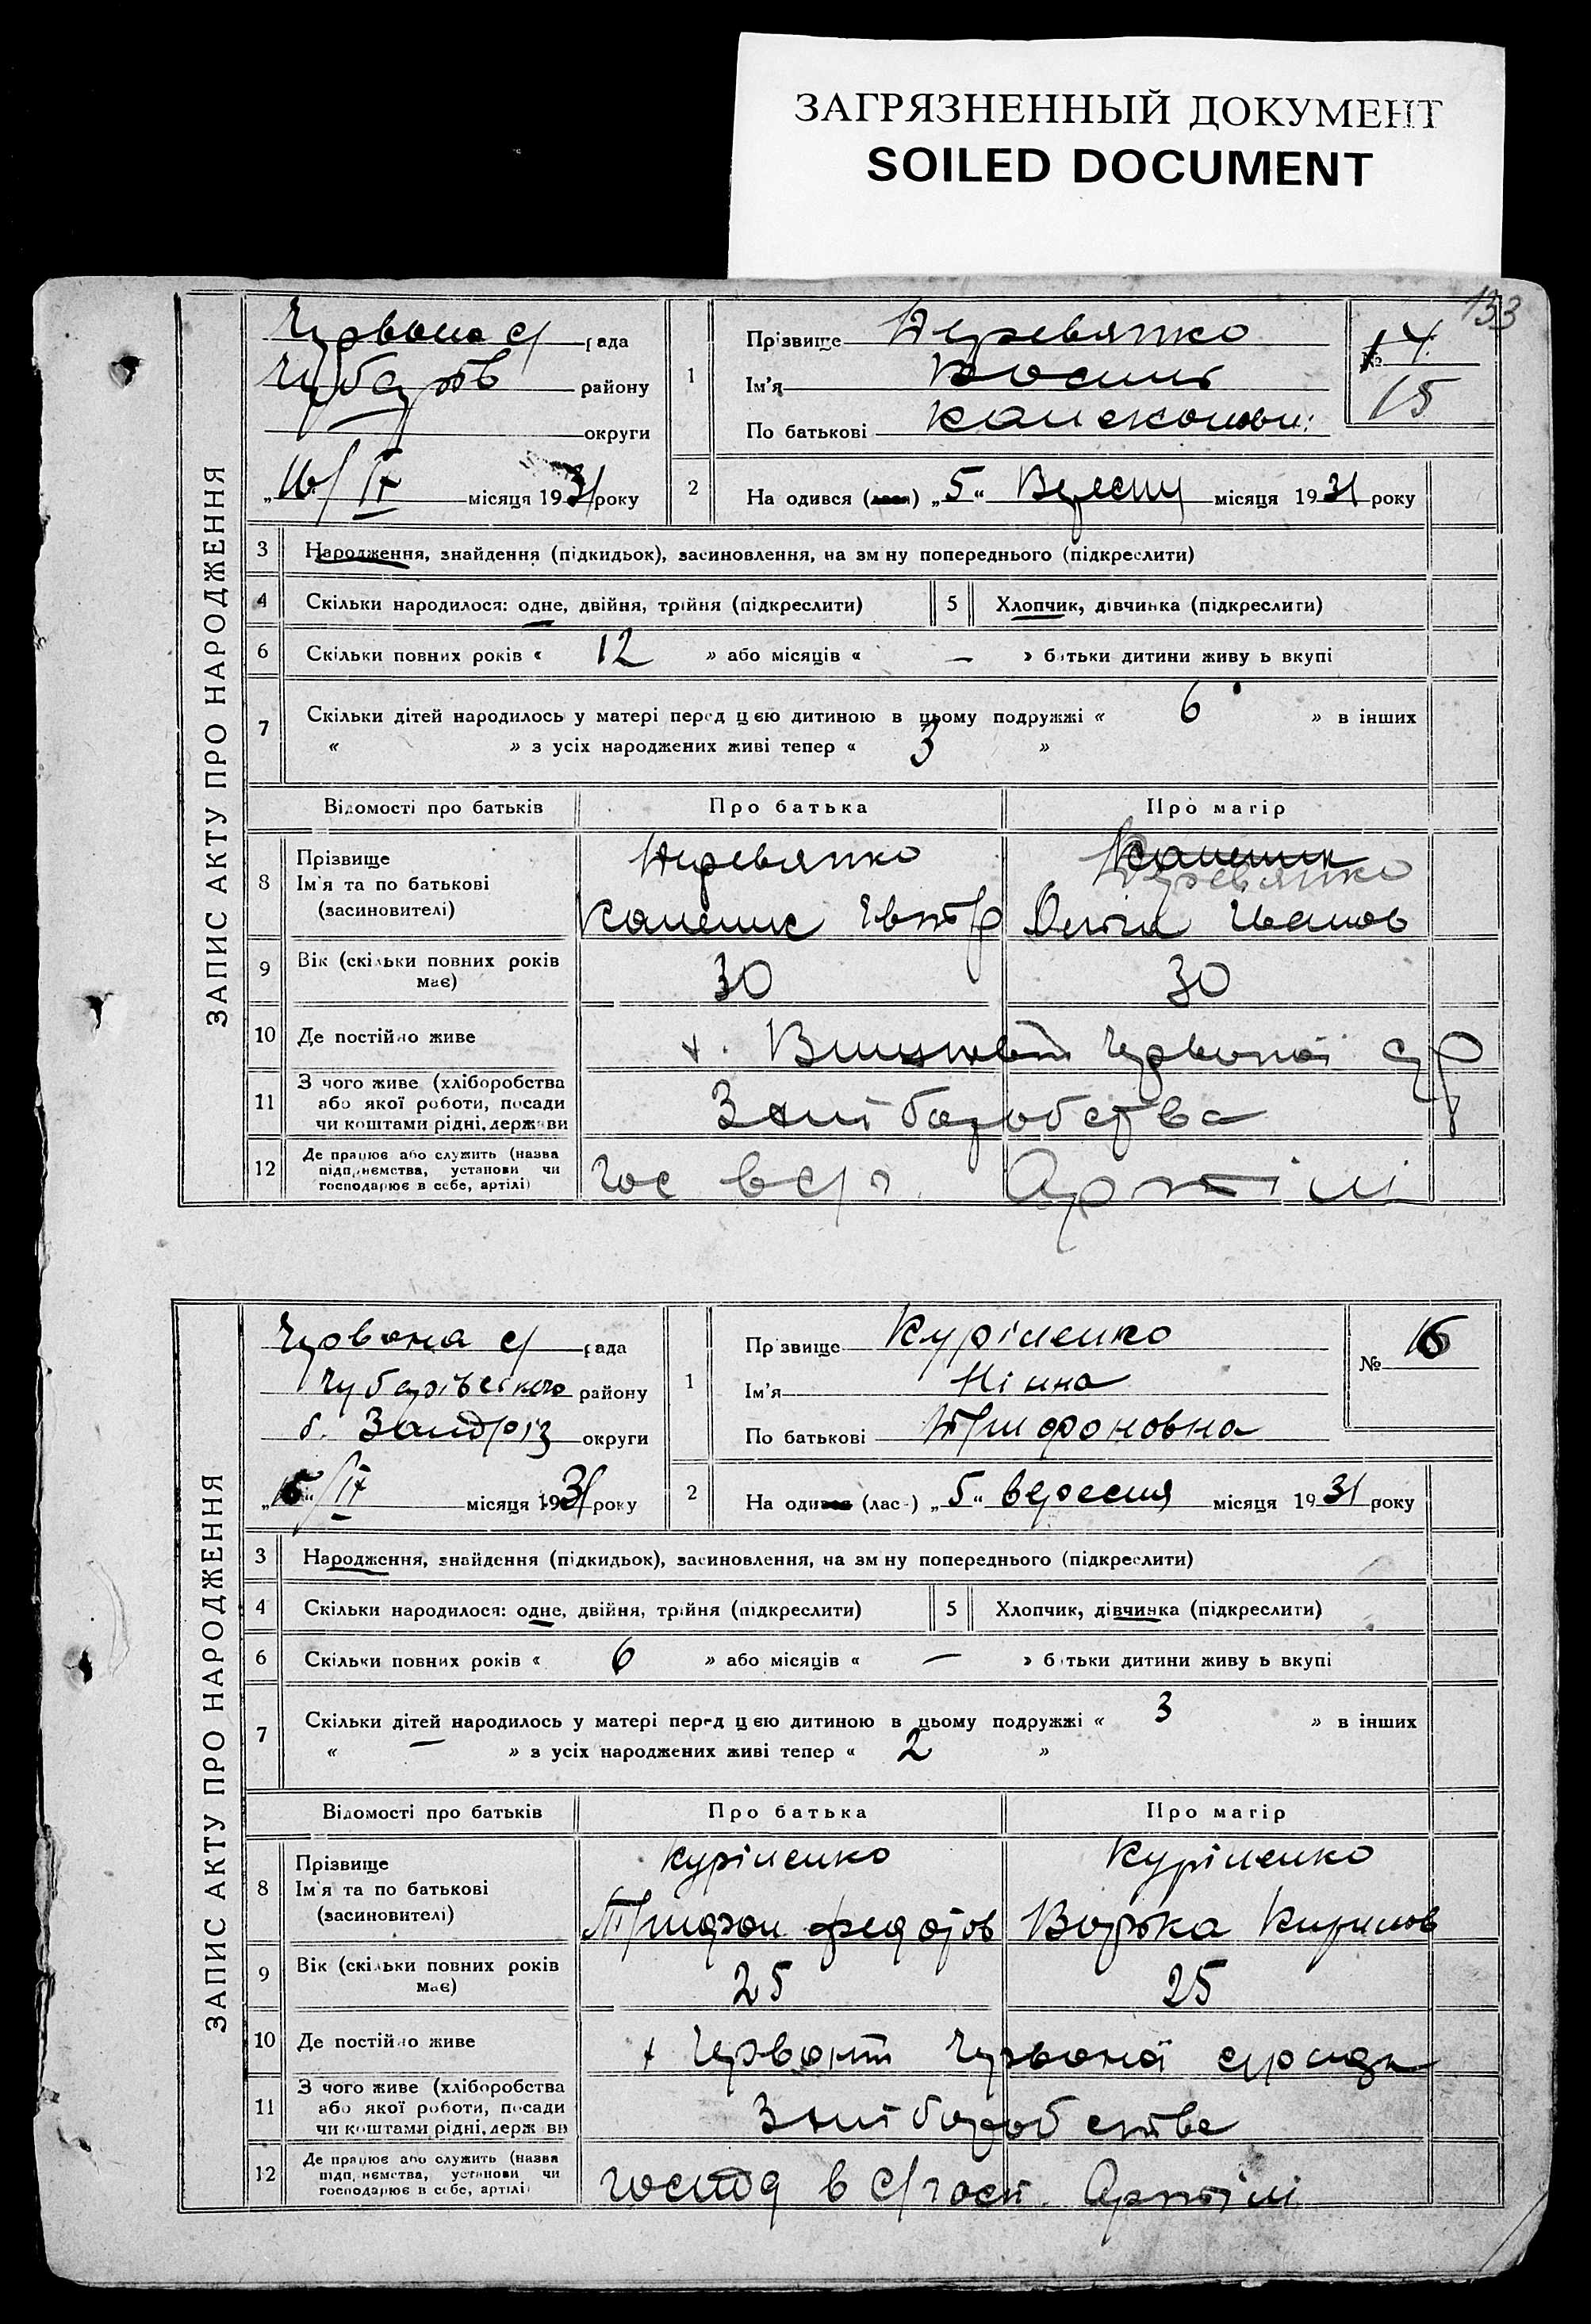 ЗАГРЯЗНЕННЫЙ ДОКУМЕНТ
SOILED DOCUMENT
133
ЗАПИС АКТУ ПРО НАРОДЖЕННЯ
Червона с/ рада
району
округи
„16/IX місяця 1931 року
1
Прізвище Деревянко
Ім'я
По батькові
№ 14
15
2
На одився „5“ Вересня місяця 1931 року
3 Народження, знайдення (підкидьок), засиновлення, на зм ну попереднього (підкреслити)
4 Скільки народилося: одне, двійня, трійня (підкреслити) 5 Хлопчик, дівчинка (підкреслити)
6 Скільки повних років « 12 » або місяців « — » батьки дитини живу ь вкупі
7 Скільки дітей народилось у матері перед цією дитиною в цьому подружжі « 6 » в інших
« » з усіх народжених живі тепер « 3 »
Відомості про батьків Про батька Про матір
8 Прізвище
Ім'я та по батькові
(засиновителі)
Деревянко
Деревянко
Іванов
9 Вік (скільки повних років має) 30 30
10 Де постійно живе х. Червоної с/р
11 З чого живе (хліборобства
або якої роботи, посади
чи коштами рідні, держави
З хліборобства
12 Де працює або служить (назва
підприємства, установи чи
господарює в себе, артілі)
гос в с/г. Артілі
ЗАПИС АКТУ ПРО НАРОДЖЕННЯ
Червона с/ рада
Чубарівського району
б. Запоріз округи
/IX місяця 1931 року
1
Пр звище Куріленко
Ім'я Нінна
По батькові Трифоновна
№ 16
2
На оди (лась) „5“ вересня місяця 1931 року
3 Народження, знайдення (підкидьок), засиновлення, на зм ну попереднього (підкреслити)
4 Скільки народилося: одне, двійня, трійня (підкреслити) 5 Хлопчик, дівчинка (підкреслити)
6 Скільки повних років « 6 » або місяців « — » батьки дитини живу ь вкупі
7 Скільки дітей народилось у матері перед цією дитиною в цьому подружжі « 3 » в інших
« — » з усіх народжених живі тепер « 2 »
Відомості про батьків Про батька Про матір
8 Прізвище
Ім'я та по батькові
(засиновителі)
Куріленко Куріленко
Трифон Федотов Кирилов
9 Вік (скільки повних років має) 25 25
10 Де постійно живе х Червоної
11 З чого живе (хліборобства
або якої роботи, посади
чи коштами рідні, держави
З хліборобства
12 Де працює або служить (назва
підприємства, установи чи
господарює в себе, артілі)
господ в с/госп. Артілі